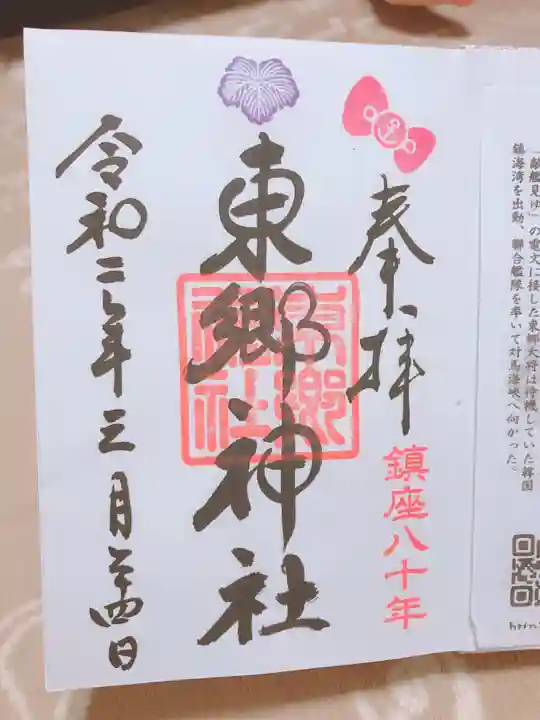 「敵艦見ゆ」の電文に接した東郷大将は待機していた韓国
鎮海湾を出動、聯合艦隊を率いて対馬海峡へ向かった。
奉拝
鎮座八十年
東郷神社
東郷神社
令和二年三月廿四日